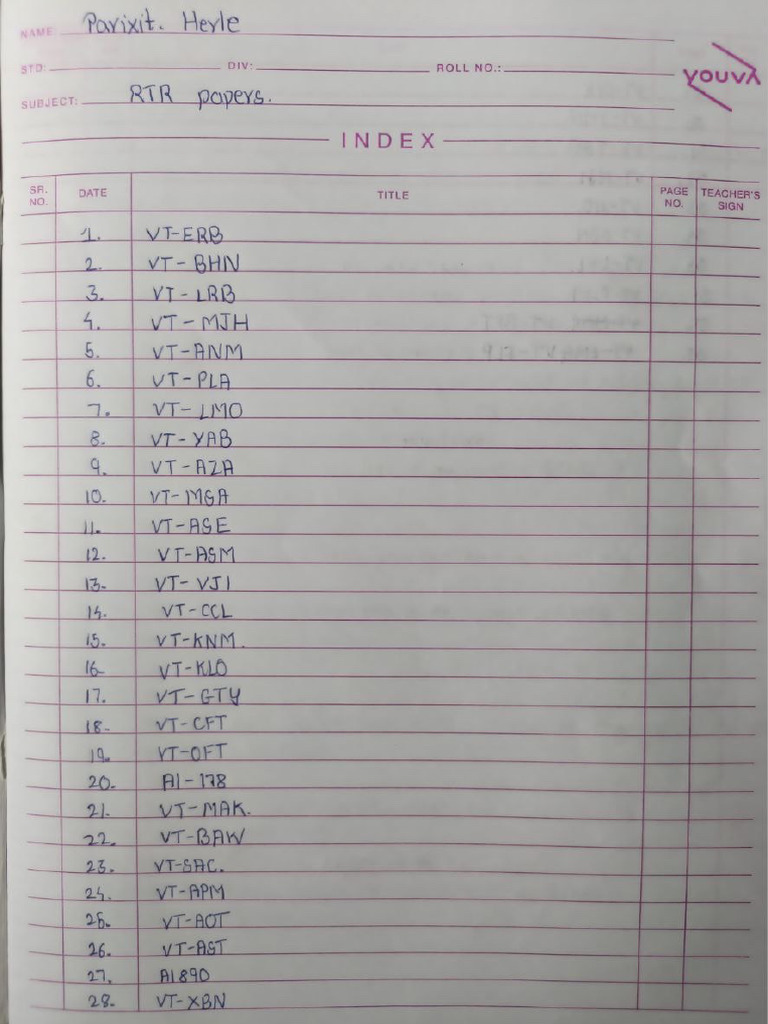 NAME: Parixit. Herle
STD: DIV: ROLL NO.: YOUVA
SUBJECT: RTR papers.
INDEX
SR. NO. DATE TITLE PAGE NO. TEACHER'S SIGN
1. VT-ERB
2. VT-BHN
3. VT-LRB
4. VT-MJH
5. VT-ANM
6. VT-PLA
7. VT-LMO
8. VT-YAB
9. VT-AZA
10. VT-MGA
11. VT-ASE
12. VT-ASM
13. VT-VJI
14. VT-CCL
15. VT-KNM.
16 VT-KLO
17. VT-GTY
18. VT-CFT
19. VT-OFT
20. AI-178
21. VT-MAK.
22. VT-BAW
23. VT-SAC.
24. VT-APM
25. VT-AOT
26. VT-AST
27. AI890
28. VT-XBN